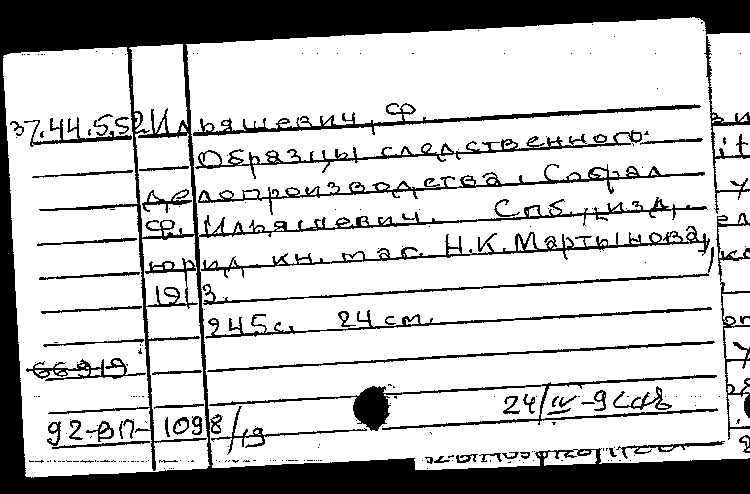 37.44.5.52. Ильяшевич, Ф.
Образцы следственного
делопроизводства. Собрал
Ф. Ильяшевич. Спб., изд.
юрид. кн. маг. Н.К. Мартынова,
1913.
245 с. 24 см.
66919
92-ВП-1098/19
24/IV-9